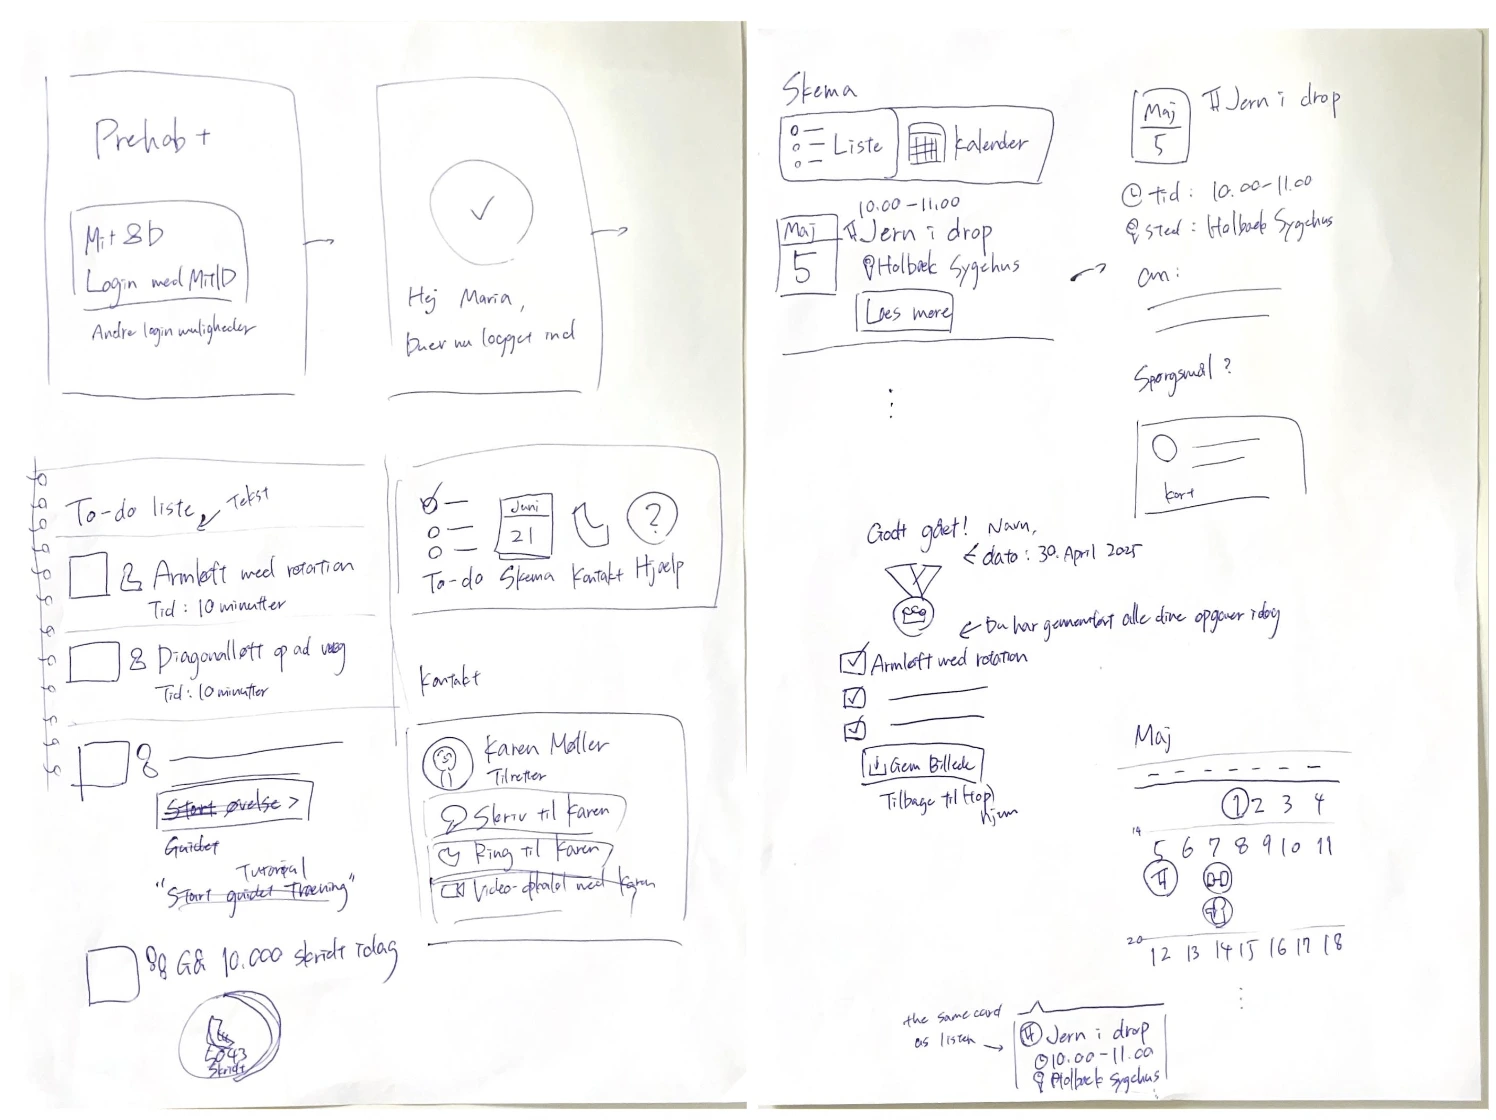 Prehab+
Mit SP
Login med MitID
Andre login muligheder
Hej Maria,
Du er nu logget ind
To-do liste
Tekst
Armløft med rotation
Tid: 10 minutter
Diagonalløft op ad væg
Tid: 10 minutter
Start øvelse >
Guidet
Tutorial
"Start guidet Træning"
Gå 10.000 skridt idag
5043
skridt
Juni
21
?
To-do Skema Kontakt Hjælp
Kontakt
Karen Møller
Skriv til Karen
Ring til Karen
Video-opkald med Karen
Skema
Liste
Kalender
10.00-11.00
Maj
5
Jern i drop
Holbæk Sygehus
Læs mere
Maj
5
Jern i drop
tid: 10.00-11.00
sted: Holbæk Sygehus
om:
Spørgsmål?
Kort
Godt gået! Navn,
dato: 30. April 2025
Du har gennemført alle dine opgaver idag
Armløft med rotation
Gem Billede
Tilbage til (top)
hjem
Maj
1 2 3 4
5 6 7 8 9 10 11
20
12 13 14 15 16 17 18
the same card
as listen
Jern i drop
10.00-11.00
Holbæk Sygehus